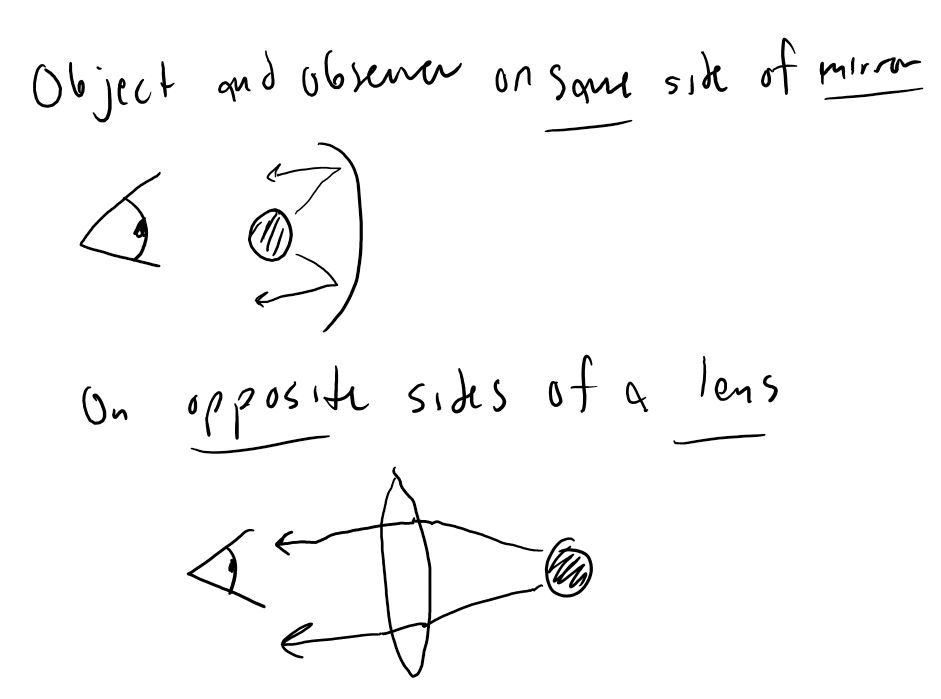 Object and observer on same side of mirror
On opposite sides of a lens